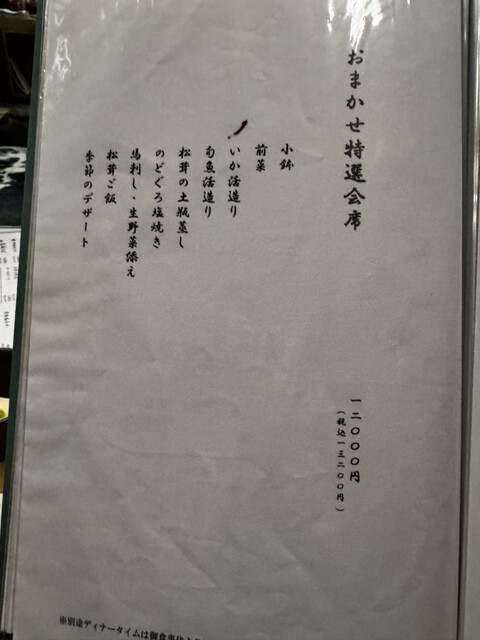 おまかせ特選会席
一二〇〇〇円
（税込一三二〇〇円）
小鉢
前菜
いか活造り
旬魚活造り
松茸の土瓶蒸し
のどぐろ塩焼き
馬刺し・生野菜添え
松茸ご飯
季節のデザート
※別途ディナータイムは御食事代